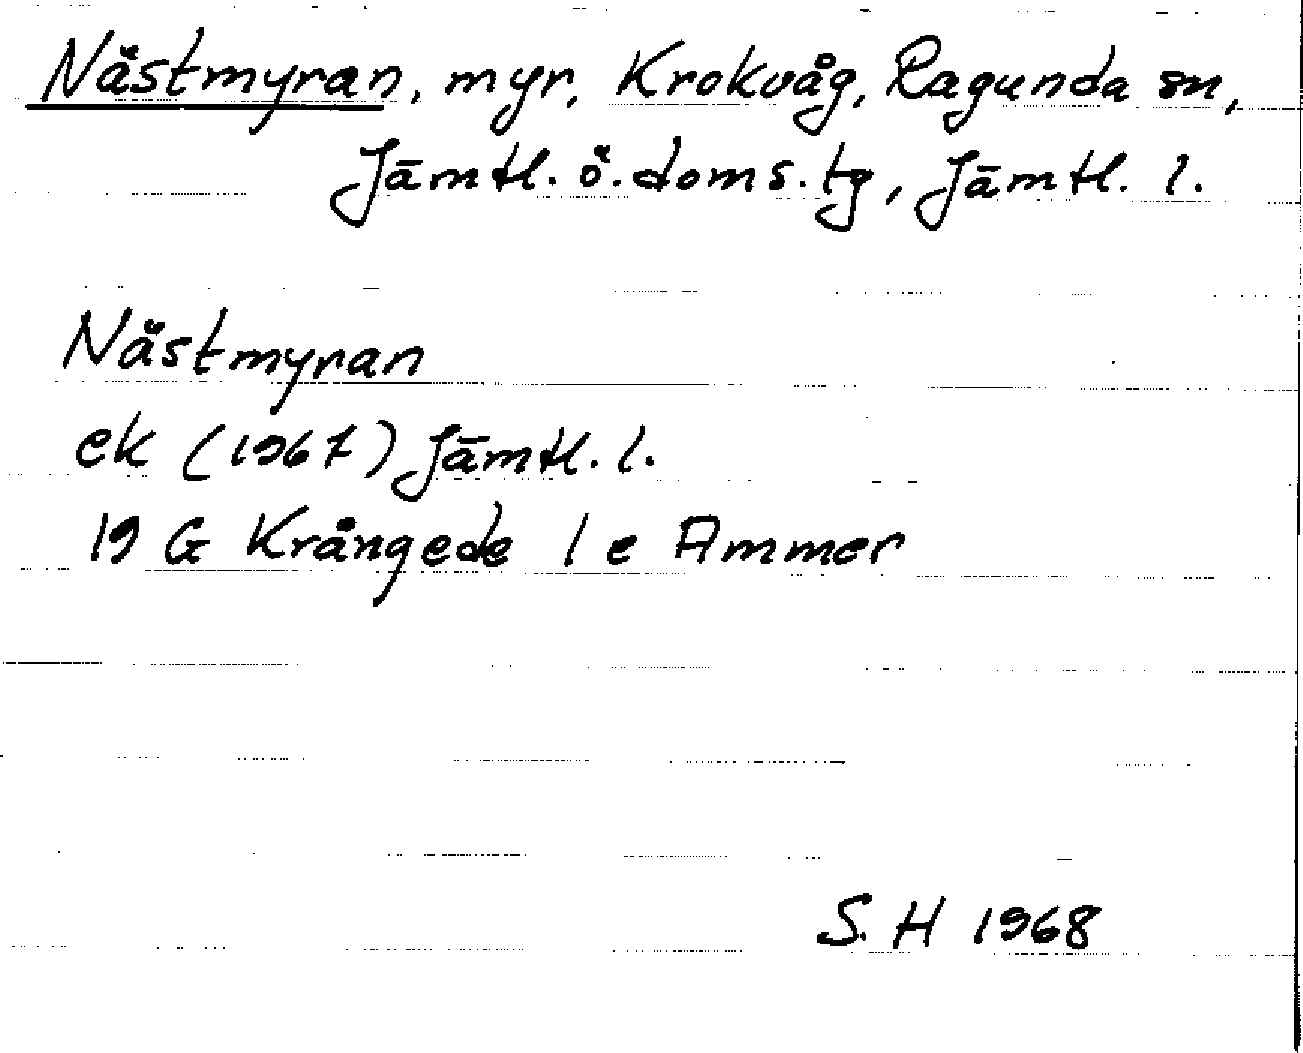 Nästmyran, myr, Krokvåg, Ragunda sn,
Jämtl. ö. doms. tg, Jämtl. l.
Nästmyran
ek (1967) Jämtl. l.
19 G Krångede 1 e Ammer
S. H 1968